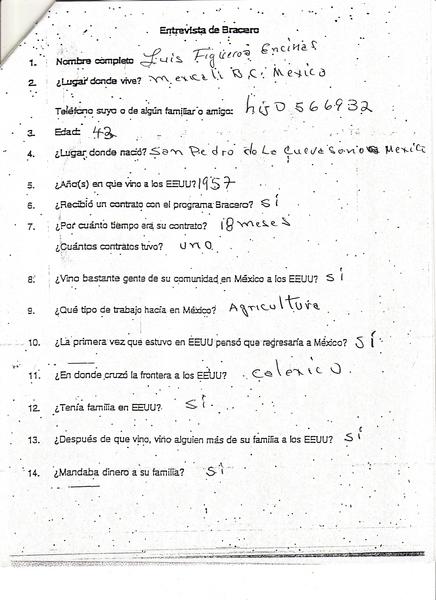 Entrevista de Bracero
1. Nombre completo Luis Figueroa Encinas
2. ¿Lugar donde vive? Mexicali B.C. Mexico
Teléfono suyo o de algún familiar o amigo: hijo 566932
3. Edad: 42
4. ¿Lugar donde nació? San Pedro de La Cueva Sonora Mexico
5. ¿Año(s) en que vino a los EEUU? 1957
6. ¿Recibió un contrato con el programa Bracero? Sí
7. ¿Por cuánto tiempo era su contrato? 18 meses
¿Cuántos contratos tuvo? uno
8. ¿Vino bastante gente de su comunidad en México a los EEUU? Sí
9. ¿Qué tipo de trabajo hacía en México? Agricultura
10. ¿La primera vez que estuvo en EEUU pensó que regresaría a México? Sí
11. ¿En donde cruzó la frontera a los EEUU? calexico
12. ¿Tenía familia en EEUU? Sí
13. ¿Después de que vino, vino alguien más de su familia a los EEUU? Sí
14. ¿Mandaba dinero a su familia? Sí